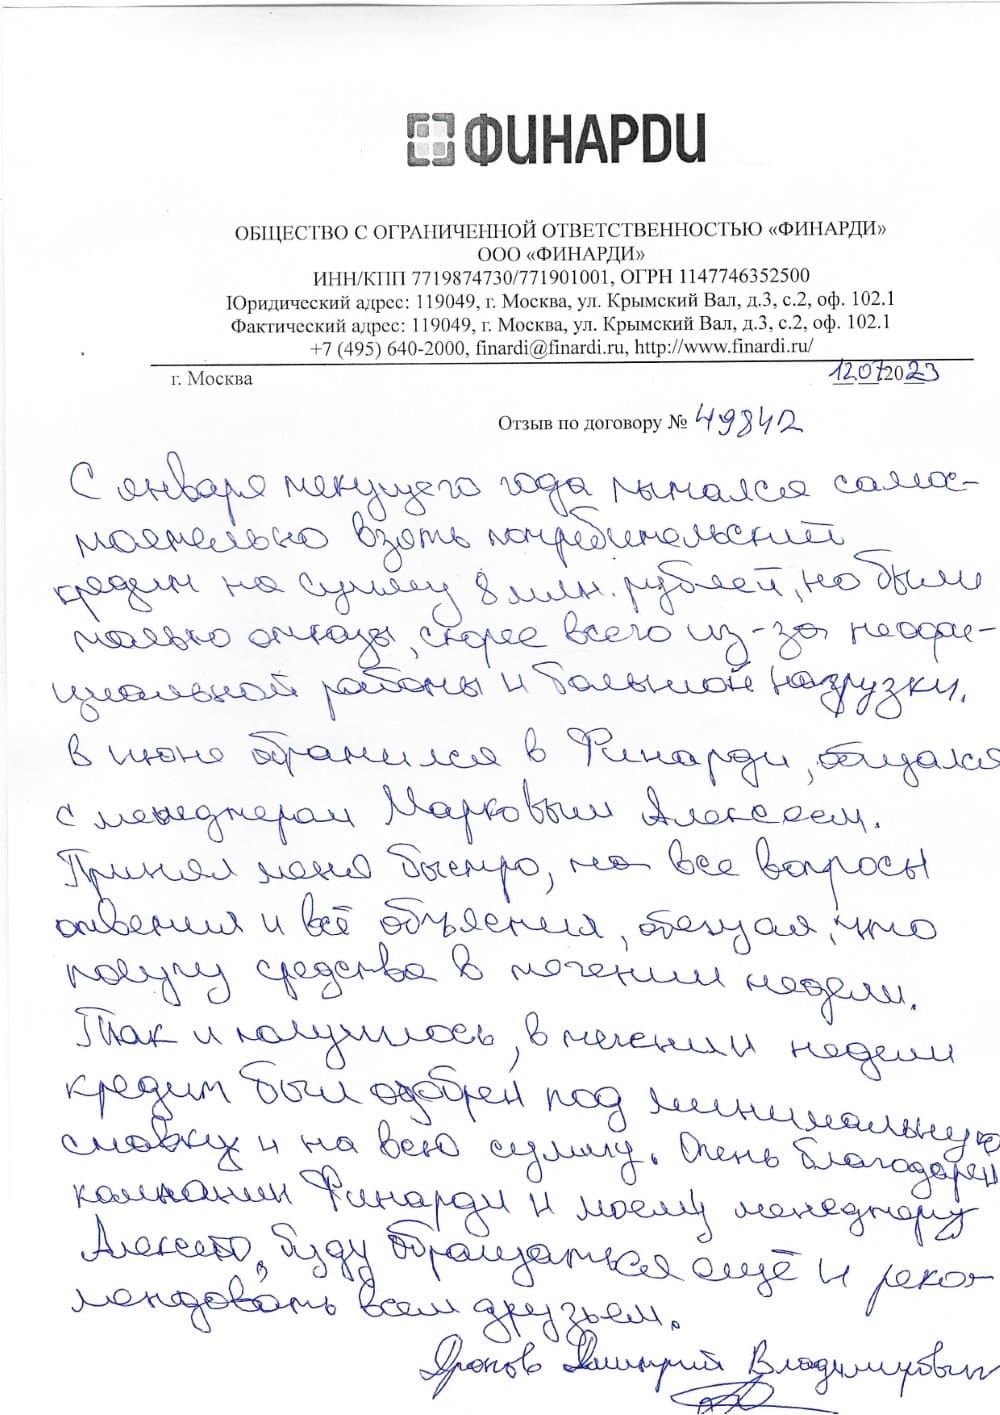 ФИНАРДИ
ОБЩЕСТВО С ОГРАНИЧЕННОЙ ОТВЕТСТВЕННОСТЬЮ «ФИНАРДИ»
ООО «ФИНАРДИ»
ИНН/КПП 7719874730/771901001, ОГРН 1147746352500
Юридический адрес: 119049, г. Москва, ул. Крымский Вал, д.3, с.2, оф. 102.1
Фактический адрес: 119049, г. Москва, ул. Крымский Вал, д.3, с.2, оф. 102.1
+7 (495) 640-2000, finardi@finardi.ru, http://www.finardi.ru/
г. Москва 12.07.2023
Отзыв по договору № 49842
С января текущего года пытался самос-
тоятельно взять потребительский
кредит на сумму 8 млн. рублей, но были
только отказы, скорее всего из-за неофи-
циальной работы и большой нагрузки.
В июне обратился в Финарди, общался
с менеджером Марковым Алексеем.
Принял меня быстро, на все вопросы
ответил и всё объяснил, обещая, что
получу средства в течении недели.
Так и получилось, в течении недели
кредит был одобрен под минимальную
ставку и на всю сумму. Очень благодарен
компании Финарди и моему менеджеру
Алексею, буду обращаться ещё и реко-
мендовать всем друзьям.
Дмитрий Владимирович